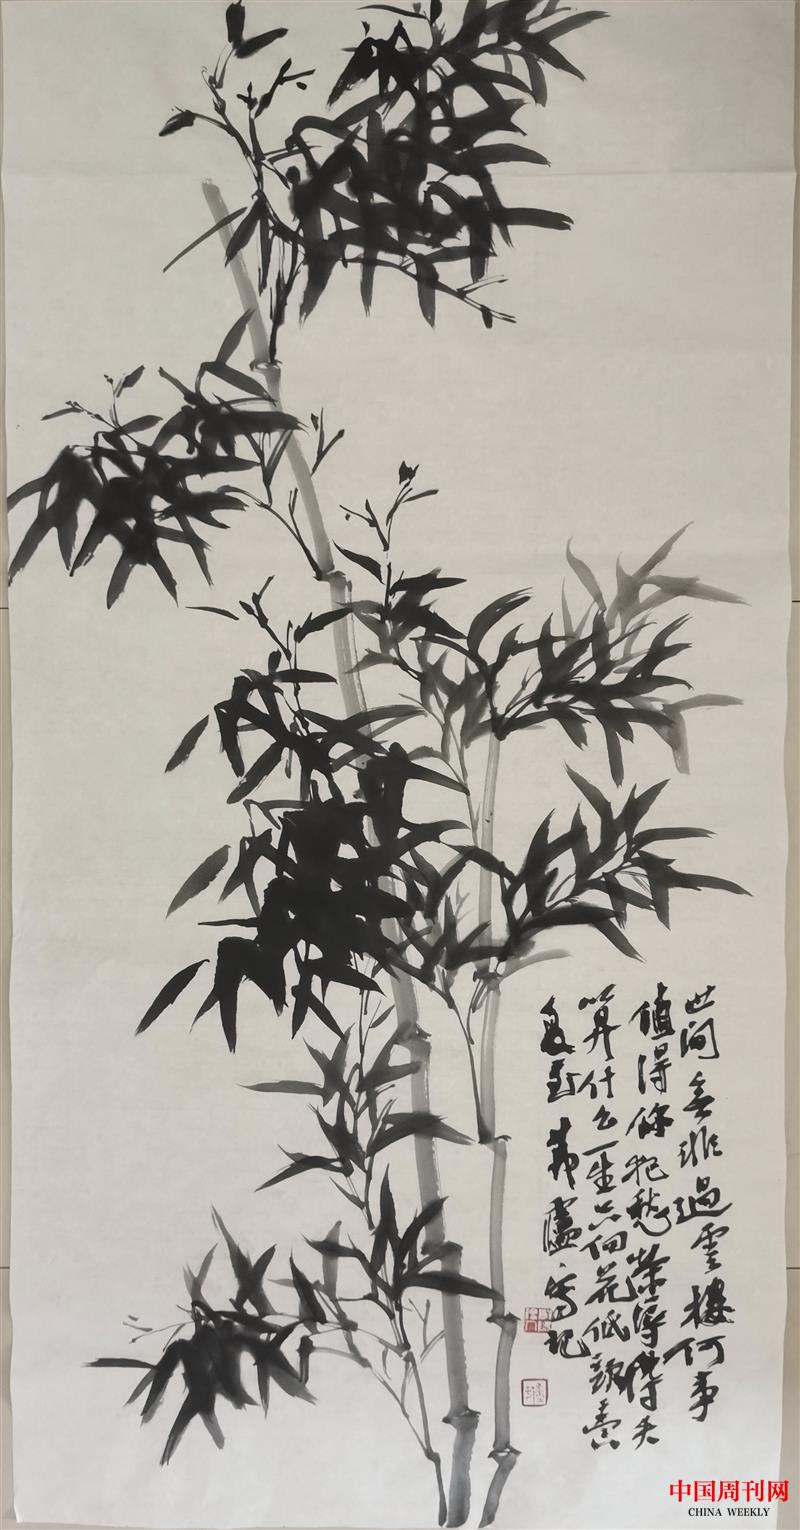 世间无非過雲樓何事
值得你犯愁荣辱得失
算什么一生只向花低頭
夏至 茆廬寫记
中国周刊网
CHINA WEEKLY